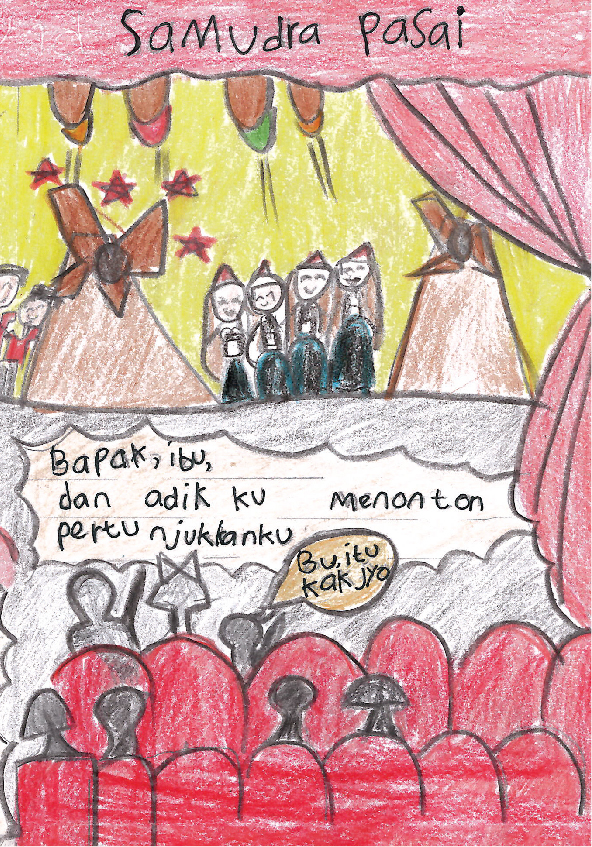 Samudra Pasai
Bapak, ibu,
dan adik ku menonton
pertunjukkanku
Bu, itu
kak Jyo